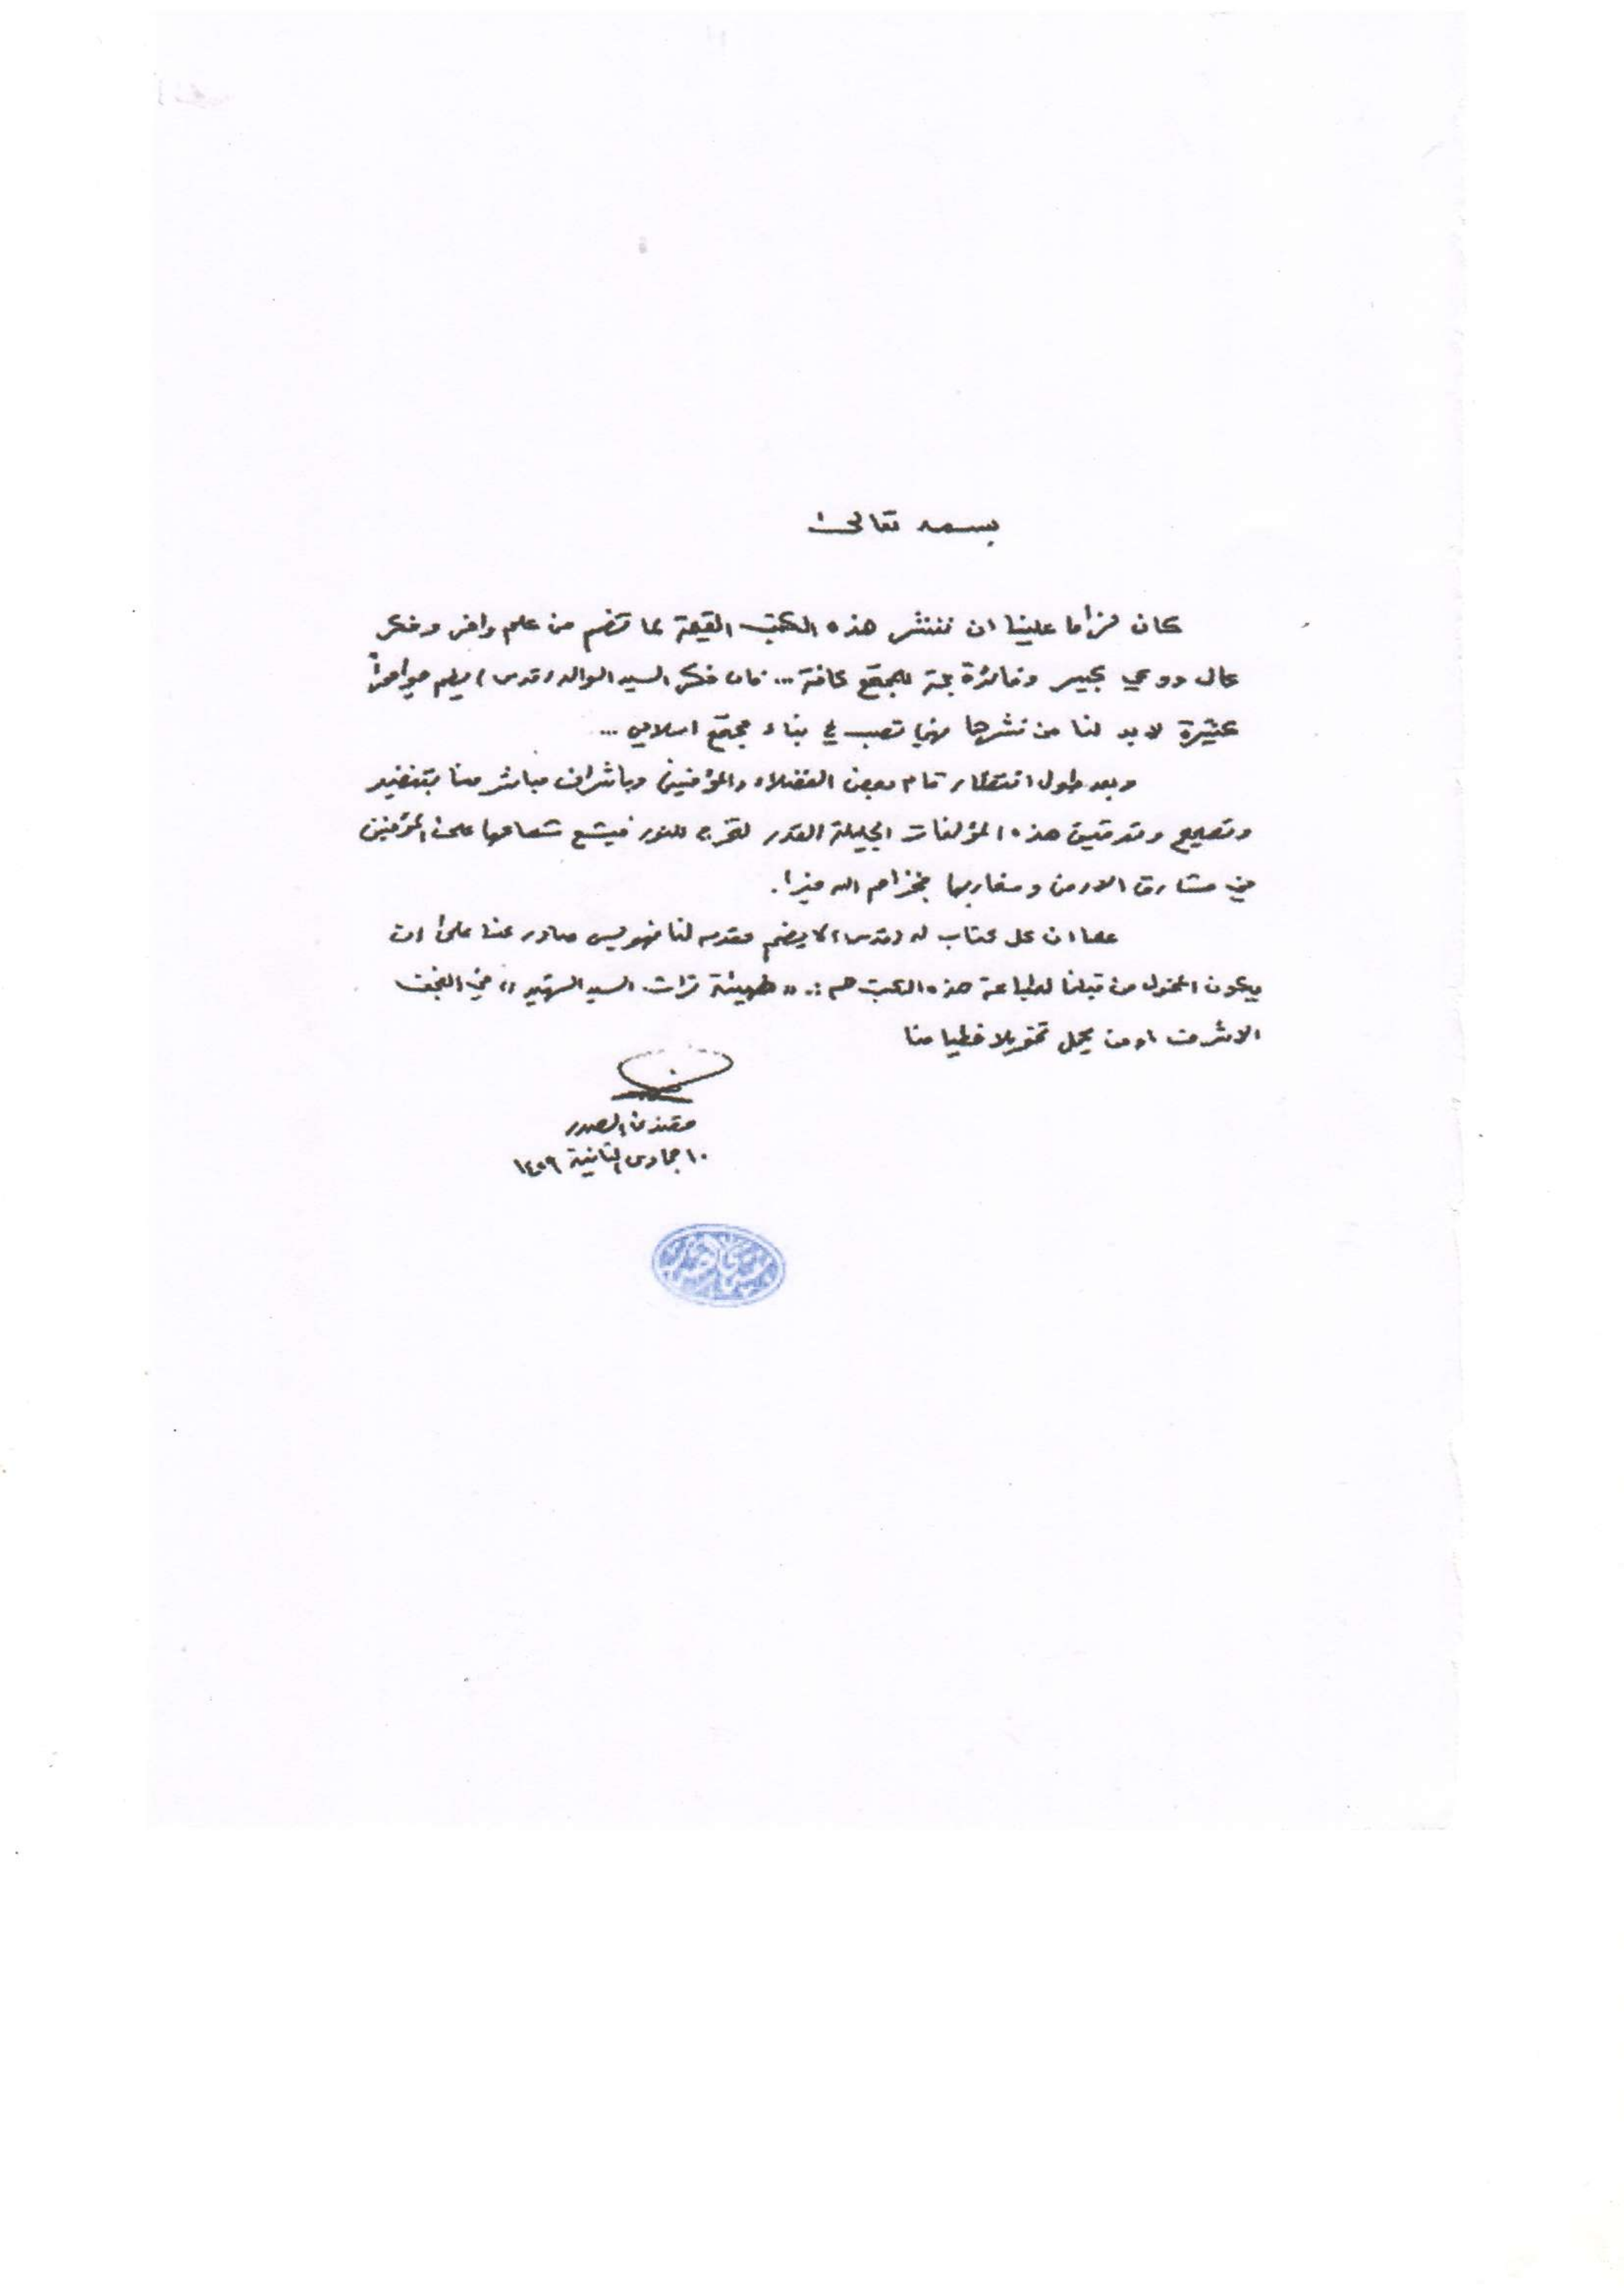 بسمه تعالى
كان لزاما علينا ان ننشر هذه الكتب القيمة لما تضم من علم وافر وفكر
عال ووعي كبير وفائدة جمة للمجتمع كافة ... فان فكر السيد الوالد (قدس)
كثيرة لا بد لنا من نشرها فهي تصب في بناء مجتمع اسلامي ...
وبعد طول انتظار قام بعض الفضلاء والمؤمنين وباشراف مباشر منا بتنضيد
وتصحيح وتدقيق هذه المؤلفات الجليلة القدر لتخرج للنور فيشع شعاعها على المؤمنين
في مشارق الارض ومغاربها فجزاهم الله خيرا.
علما ان كل كتاب له (قدس) لا يضم مقدمة لنا فهو ليس صادر عنا على ان
يكون المخول من قبلنا لطباعة هذه الكتب هم: «هيئة تراث السيد الشهيد» في النجف
الاشرف او من يحمل تخويلا خطيا منا
مقتدى الصدر
١٠ جمادى الثانية ١٤٢٩
مقتدى الصدر